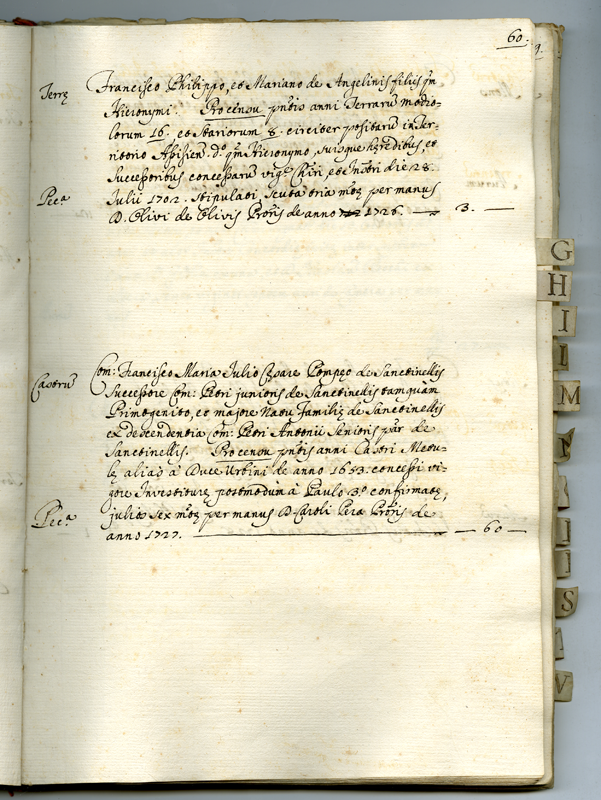 60.
9.
Terrę
Francisco Philippo, et Mariano de Angelinis filiis qm
Hieronymi. Pro censu pntis anni Terrarū modio-
lorum 16. et stariorum 8. circiter positarū in Ter-
ritorio Assisien. do. qm Hieronymo, suisque hęredibus, et
Successoribus concessarū vige. Chiri, et Instri die 28.
Julii 1702. stipulati, scuta tria mtę per manus
D. Olivi de Olivis Proris de anno 1726. — 3. —
Pecа
Castrū
Com: Francisco Maria Julio Cęsare Pompęo de Sanctinellis
Successore Com: Petri junioris de Sanctinellis tamquam
Primogenito, et majore Natu Familię de Sanctinellis
ex descendentia Com: Petri Antonii Senioris par de
Sanctinellis. Pro censu pntis anni Castri Metu-
lę alias à Duce Urbini de anno 1653. concessi vi-
gore Investiturę postmodum à Paulo 3.o confirmatę,
julia sex mtę per manus D. Caroli Perę Proris de
anno 1727. — 60 —
Peca
G
H
I
I
M
S
V